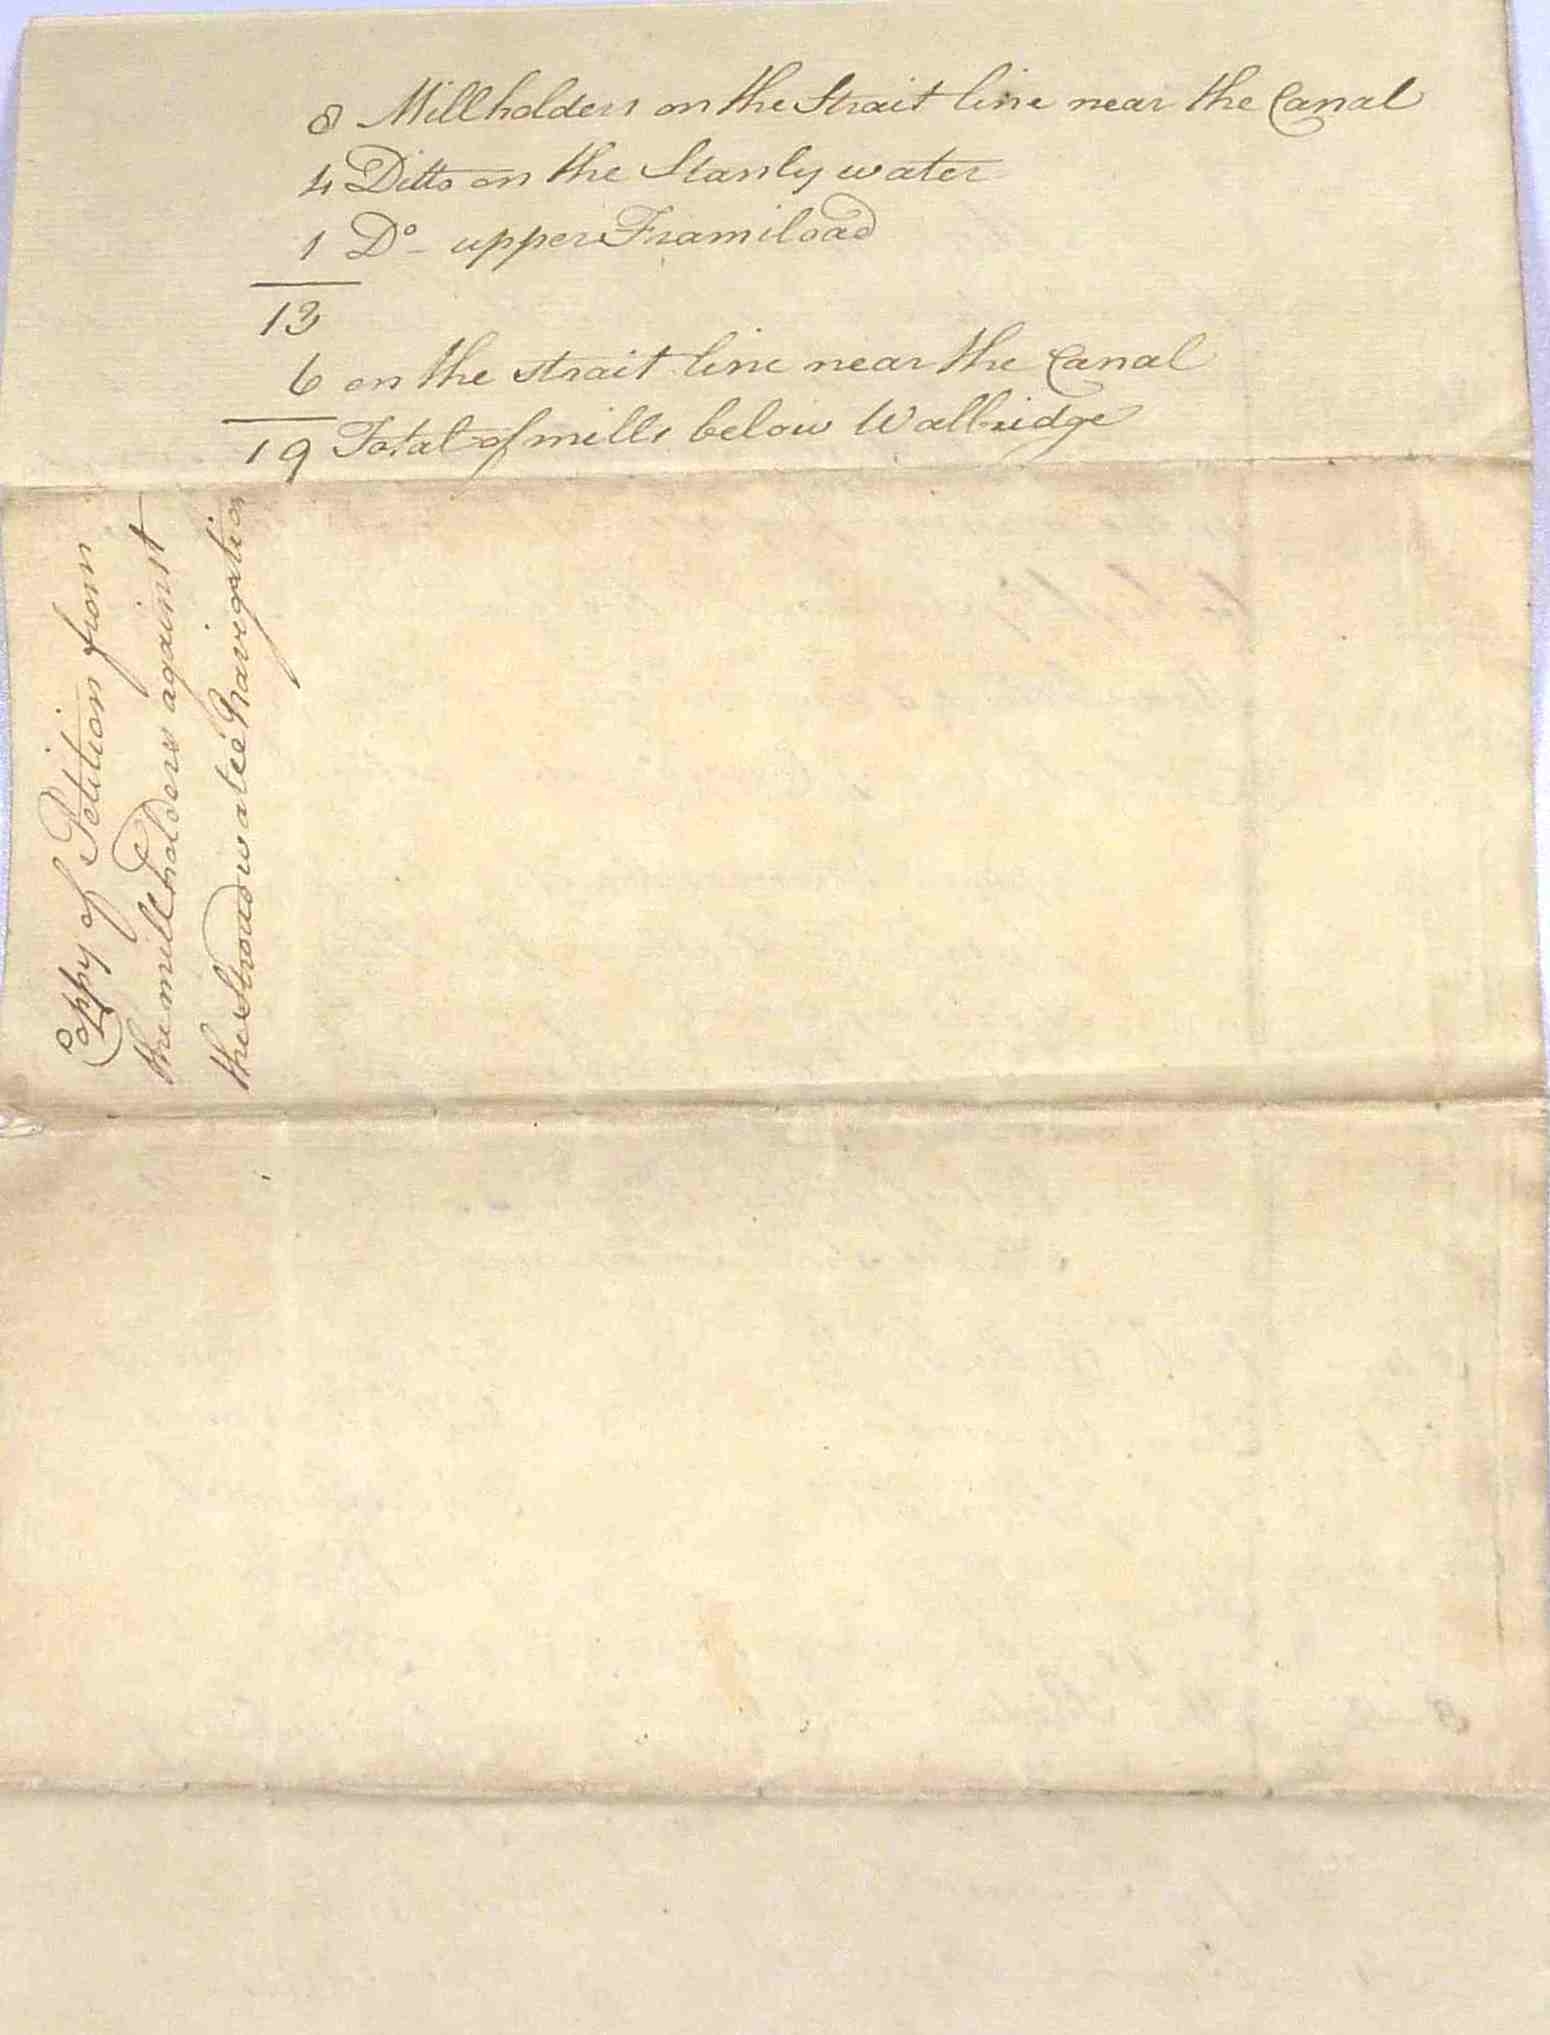 8 Millholders on the Strait line near the Canal
4 Ditto on the Stanly water
1 Do- upper Framiload
13
6 on the strait line near the Canal
19 Total of mills below Wallbridge
Coppy of Petition from
the millholders against
the Stroudwater Navigation